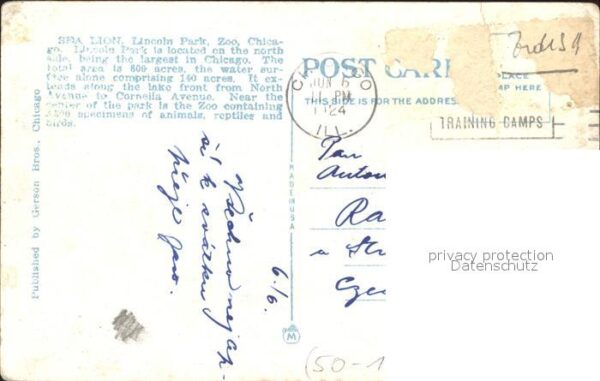 SEA LION, Lincoln Park, Zoo, Chica-
go. Lincoln Park is located on the north
side, being the largest in Chicago. The
total area is 600 acres, the water sur-
face alone comprising 140 acres. It ex-
tends along the lake front from North
Avenue to Cornelia Avenue. Near the
center of the park is the Zoo containing
specimens of animals, reptiles and
birds.
Published by Gerson Bros., Chicago
MADE IN USA
M
POST CARD
THIS SIDE IS FOR THE ADDRESS
PLACE
STAMP HERE
CHICAGO
JUN 6
11 PM
1924
ILL.
TRAINING CAMPS
6./6.
Všechno nejlep-
ší k svátku
přeje
Pan
Anton
Ra
a Str
Cze
privacy protection
Datenschutz
(50-1